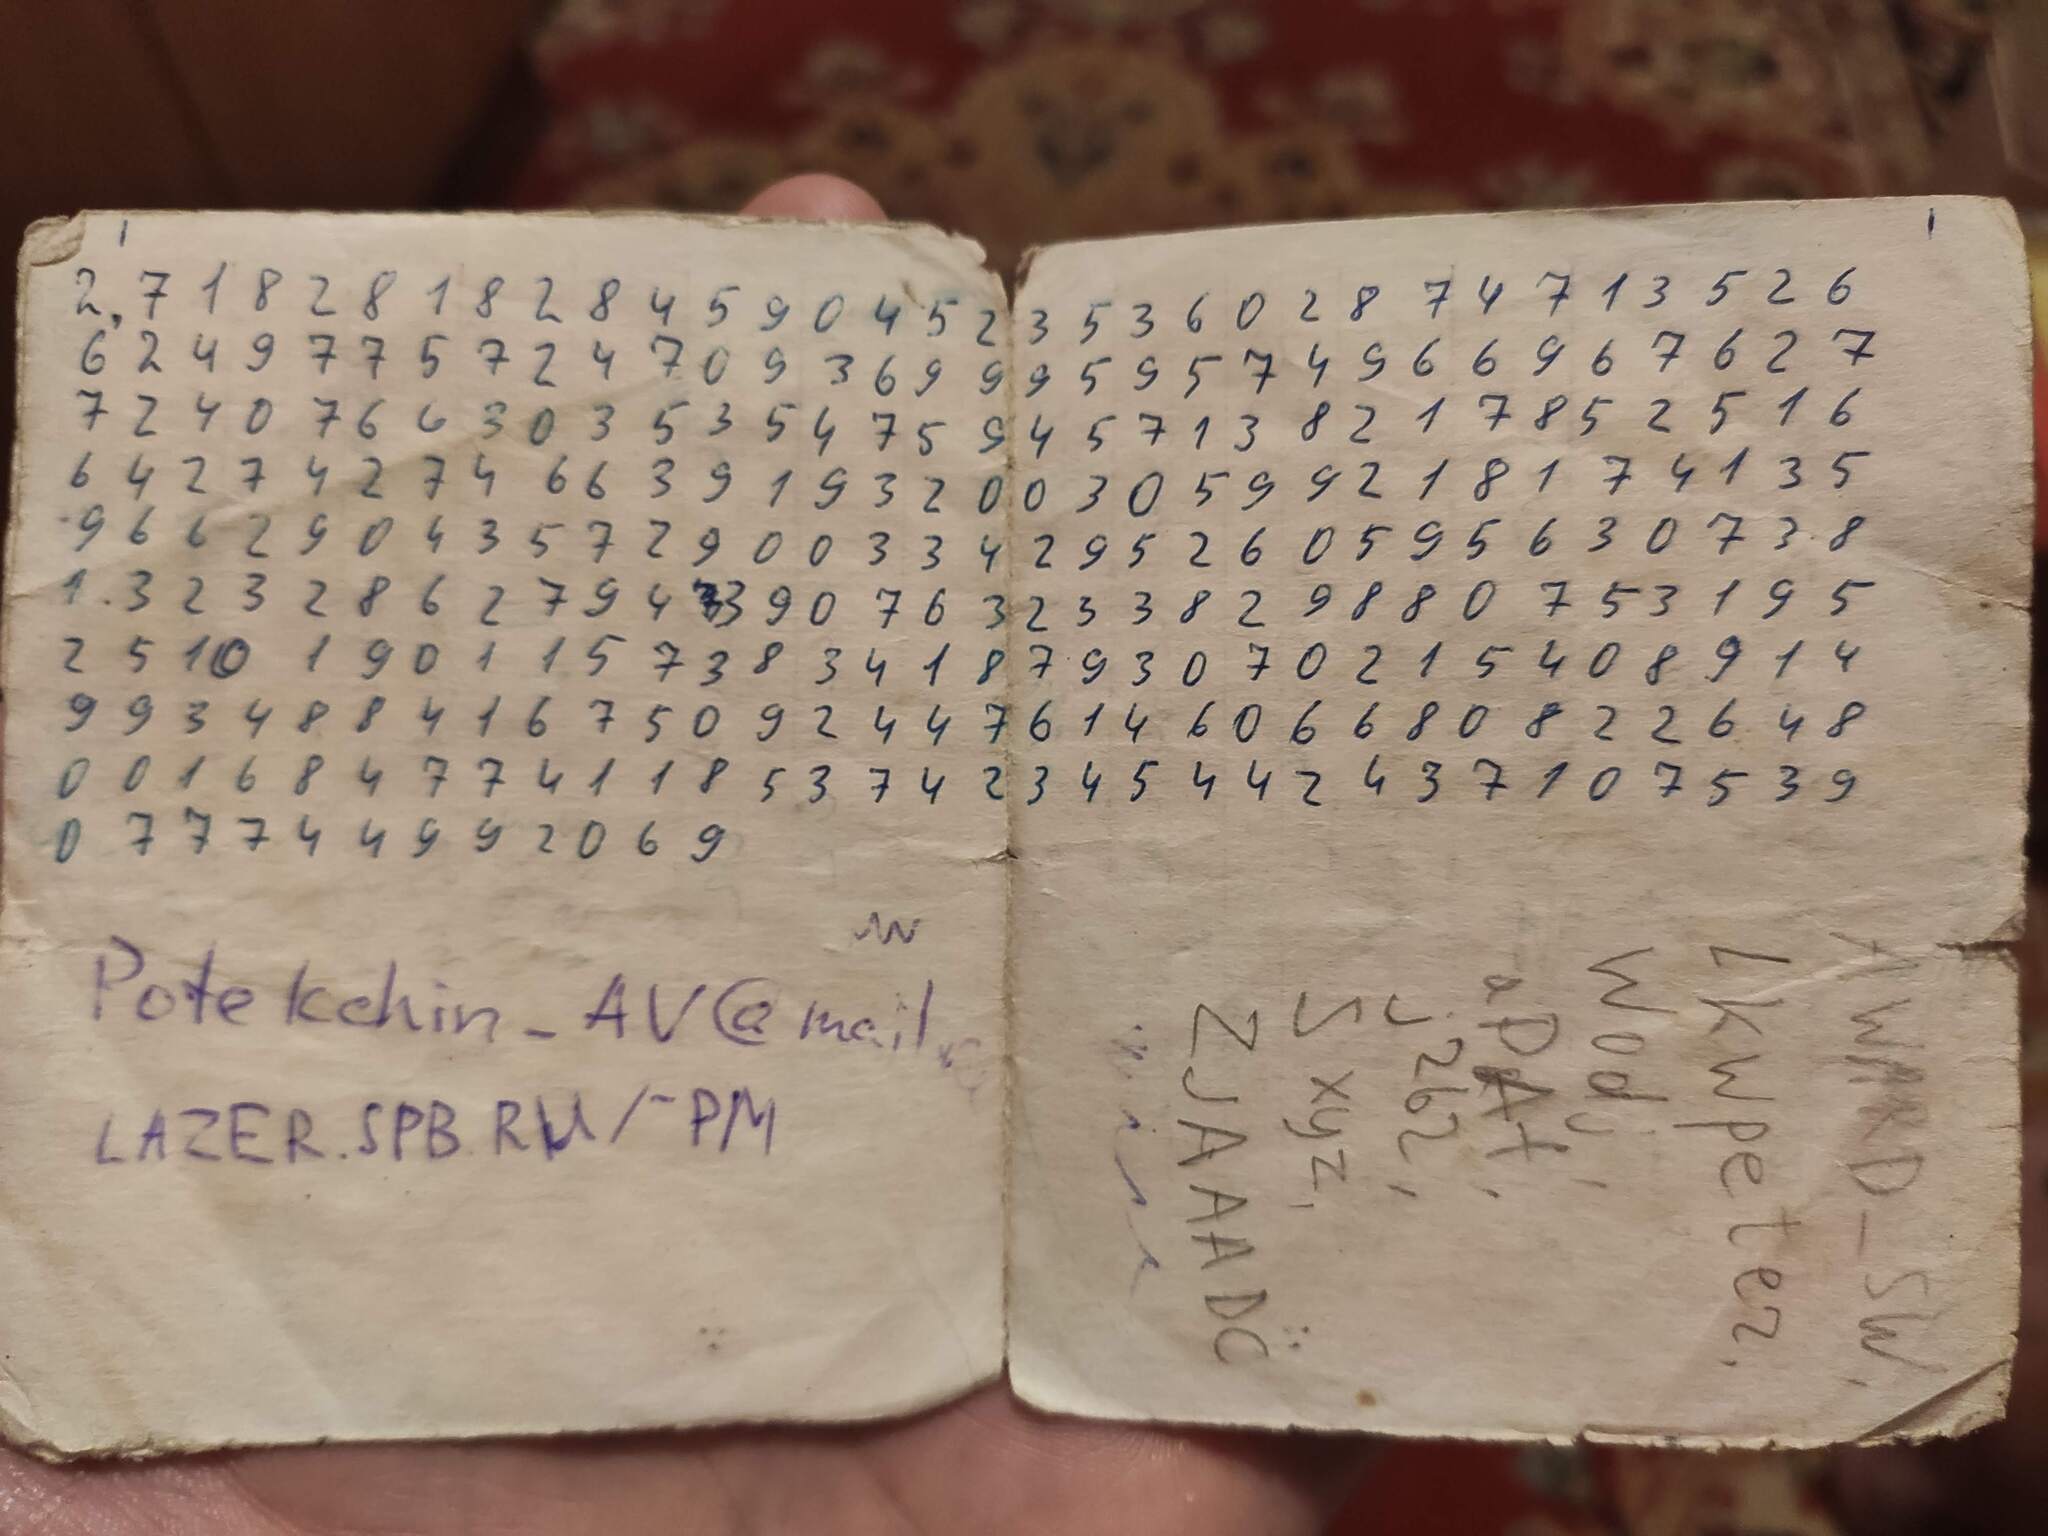 2,7 1 8 2 8 1 8 2 8 4 5 9 0 4 5 2 3 5 3 6 0 2 8 7 4 7 1 3 5 2 6
6 2 4 9 7 7 5 7 2 4 7 0 9 3 6 9 9 9 5 9 5 7 4 9 6 6 9 6 7 6 2 7
7 2 4 0 7 6 6 3 0 3 5 3 5 4 7 5 9 4 5 7 1 3 8 2 1 7 8 5 2 5 1 6
6 4 2 7 4 2 7 4 6 6 3 9 1 9 3 2 0 0 3 0 5 9 9 2 1 8 1 7 4 1 3 5
9 6 6 2 9 0 4 3 5 7 2 9 0 0 3 3 4 2 9 5 2 6 0 5 9 5 6 3 0 7 3 8
1 3 2 3 2 8 6 2 7 9 4 3 9 0 7 6 3 2 3 3 8 2 9 8 8 0 7 5 3 1 9 5
2 5 1 0 1 9 0 1 1 5 7 3 8 3 4 1 8 7 9 3 0 7 0 2 1 5 4 0 8 9 1 4
9 9 3 4 8 8 4 1 6 7 5 0 9 2 4 4 7 6 1 4 6 0 6 6 8 0 8 2 2 6 4 8
0 0 1 6 8 4 7 7 4 1 1 8 5 3 7 4 2 3 4 5 4 4 2 4 3 7 1 0 7 5 3 9
0 7 7 7 4 4 9 9 2 0 6 9
Potekchin_AV@mail.ru
LAZER.SPB.RU/~PM
AWARD_SW,
Lkwpeter,
Wodj,
aPAf,
j262,
Sxyz,
ZJAAADC